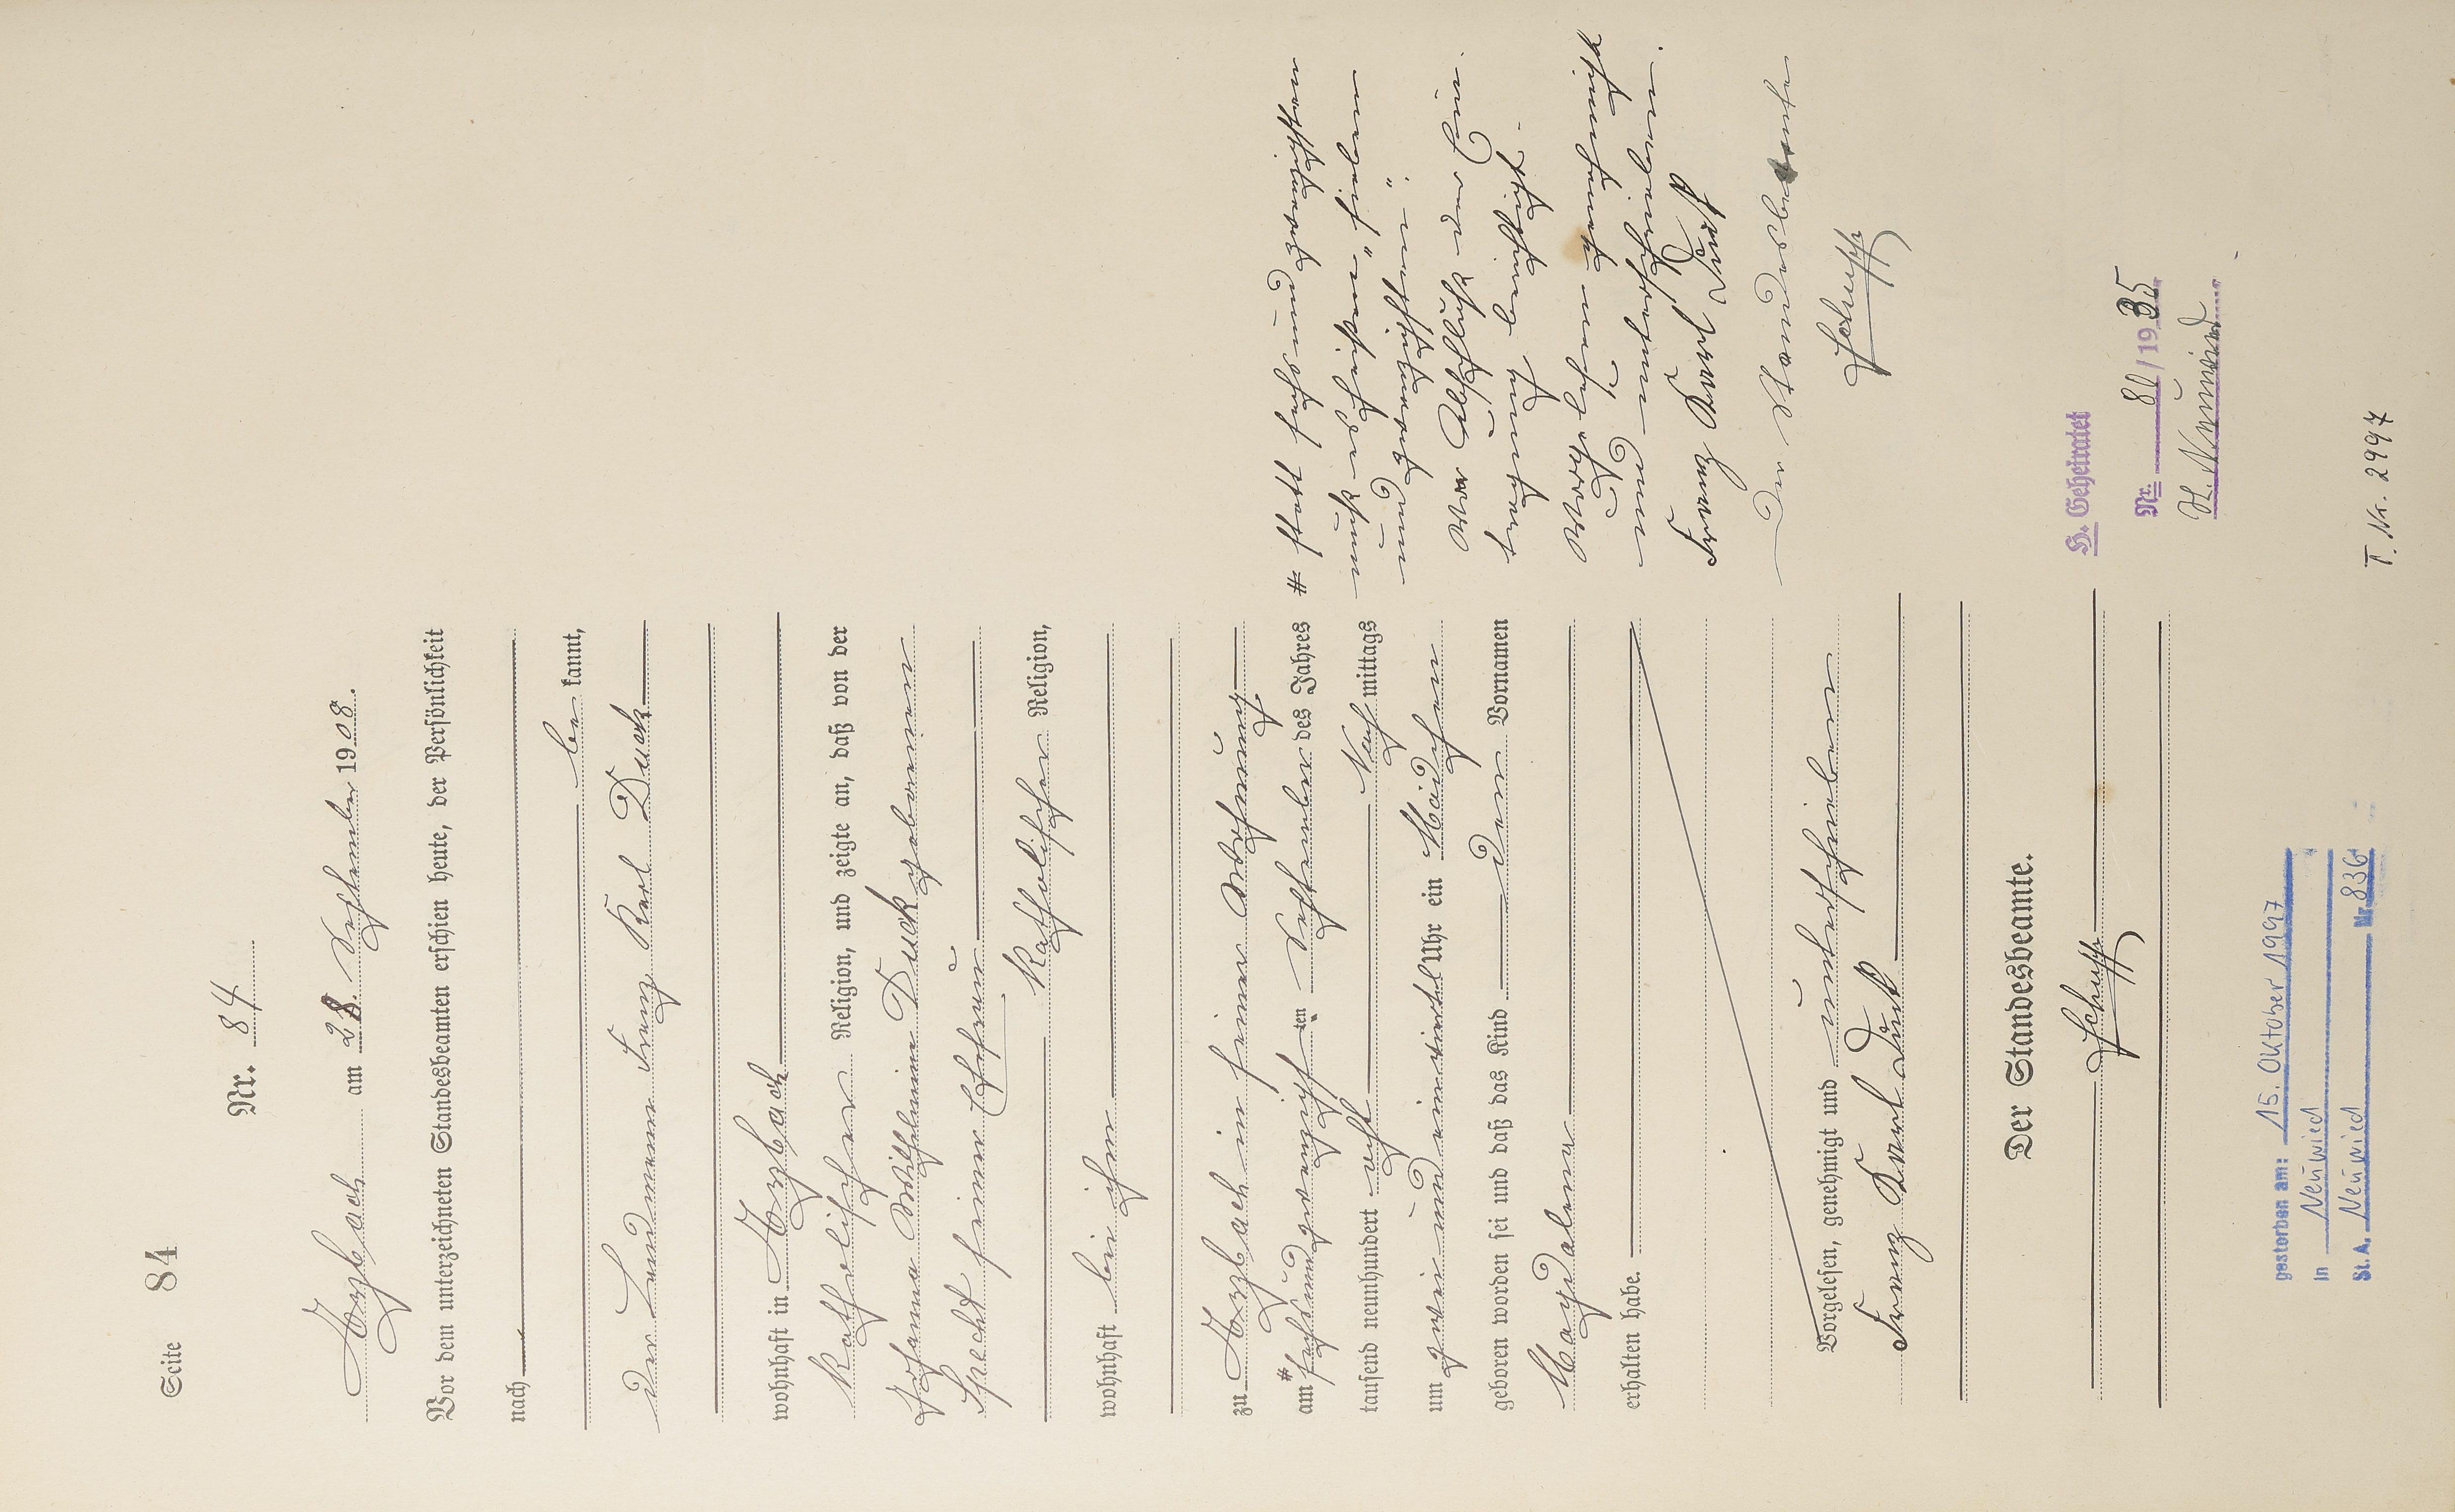 Seite 84
Nr. 84
Asbach am 28. September 1908.
Vor dem unterzeichneten Standesbeamten erschien heute, der Persönlichkeit
nach
be kannt,
der Landmann Franz Karl Duck
wohnhaft in Asbach
katholischer Religion, und zeigte an, daß von der
Johanna Wilhelmine Duck geborenen
Specht seiner Ehefrau
katholischer Religion,
wohnhaft bei ihm
zu Asbach in seiner Wohnung
am # sechsundzwanzigsten September des Jahres
tausend neunhundert acht Nach mittags
um zwei und ein viertel Uhr ein Mädchen
geboren worden sei und daß das Kind den Vornamen
Magdalena
erhalten habe.
# statt sechsundzwanzigsten
muß es heißen „sieben
und zwanzigsten".
Vorgelesen genehmigt
und unterschrieben.
Franz Karl Duck
Der Standesbeamte
Schupp
Vorgelesen, genehmigt und unterschrieben
Franz Karl Duck
Der Standesbeamte.
Schupp
H. Geheiratet
Nr. 80/1935
St. Neuwied
gestorben am: 15. Oktober 1997
in Neuwied
St.A. Neuwied Nr. 836
T. Nr. 2997